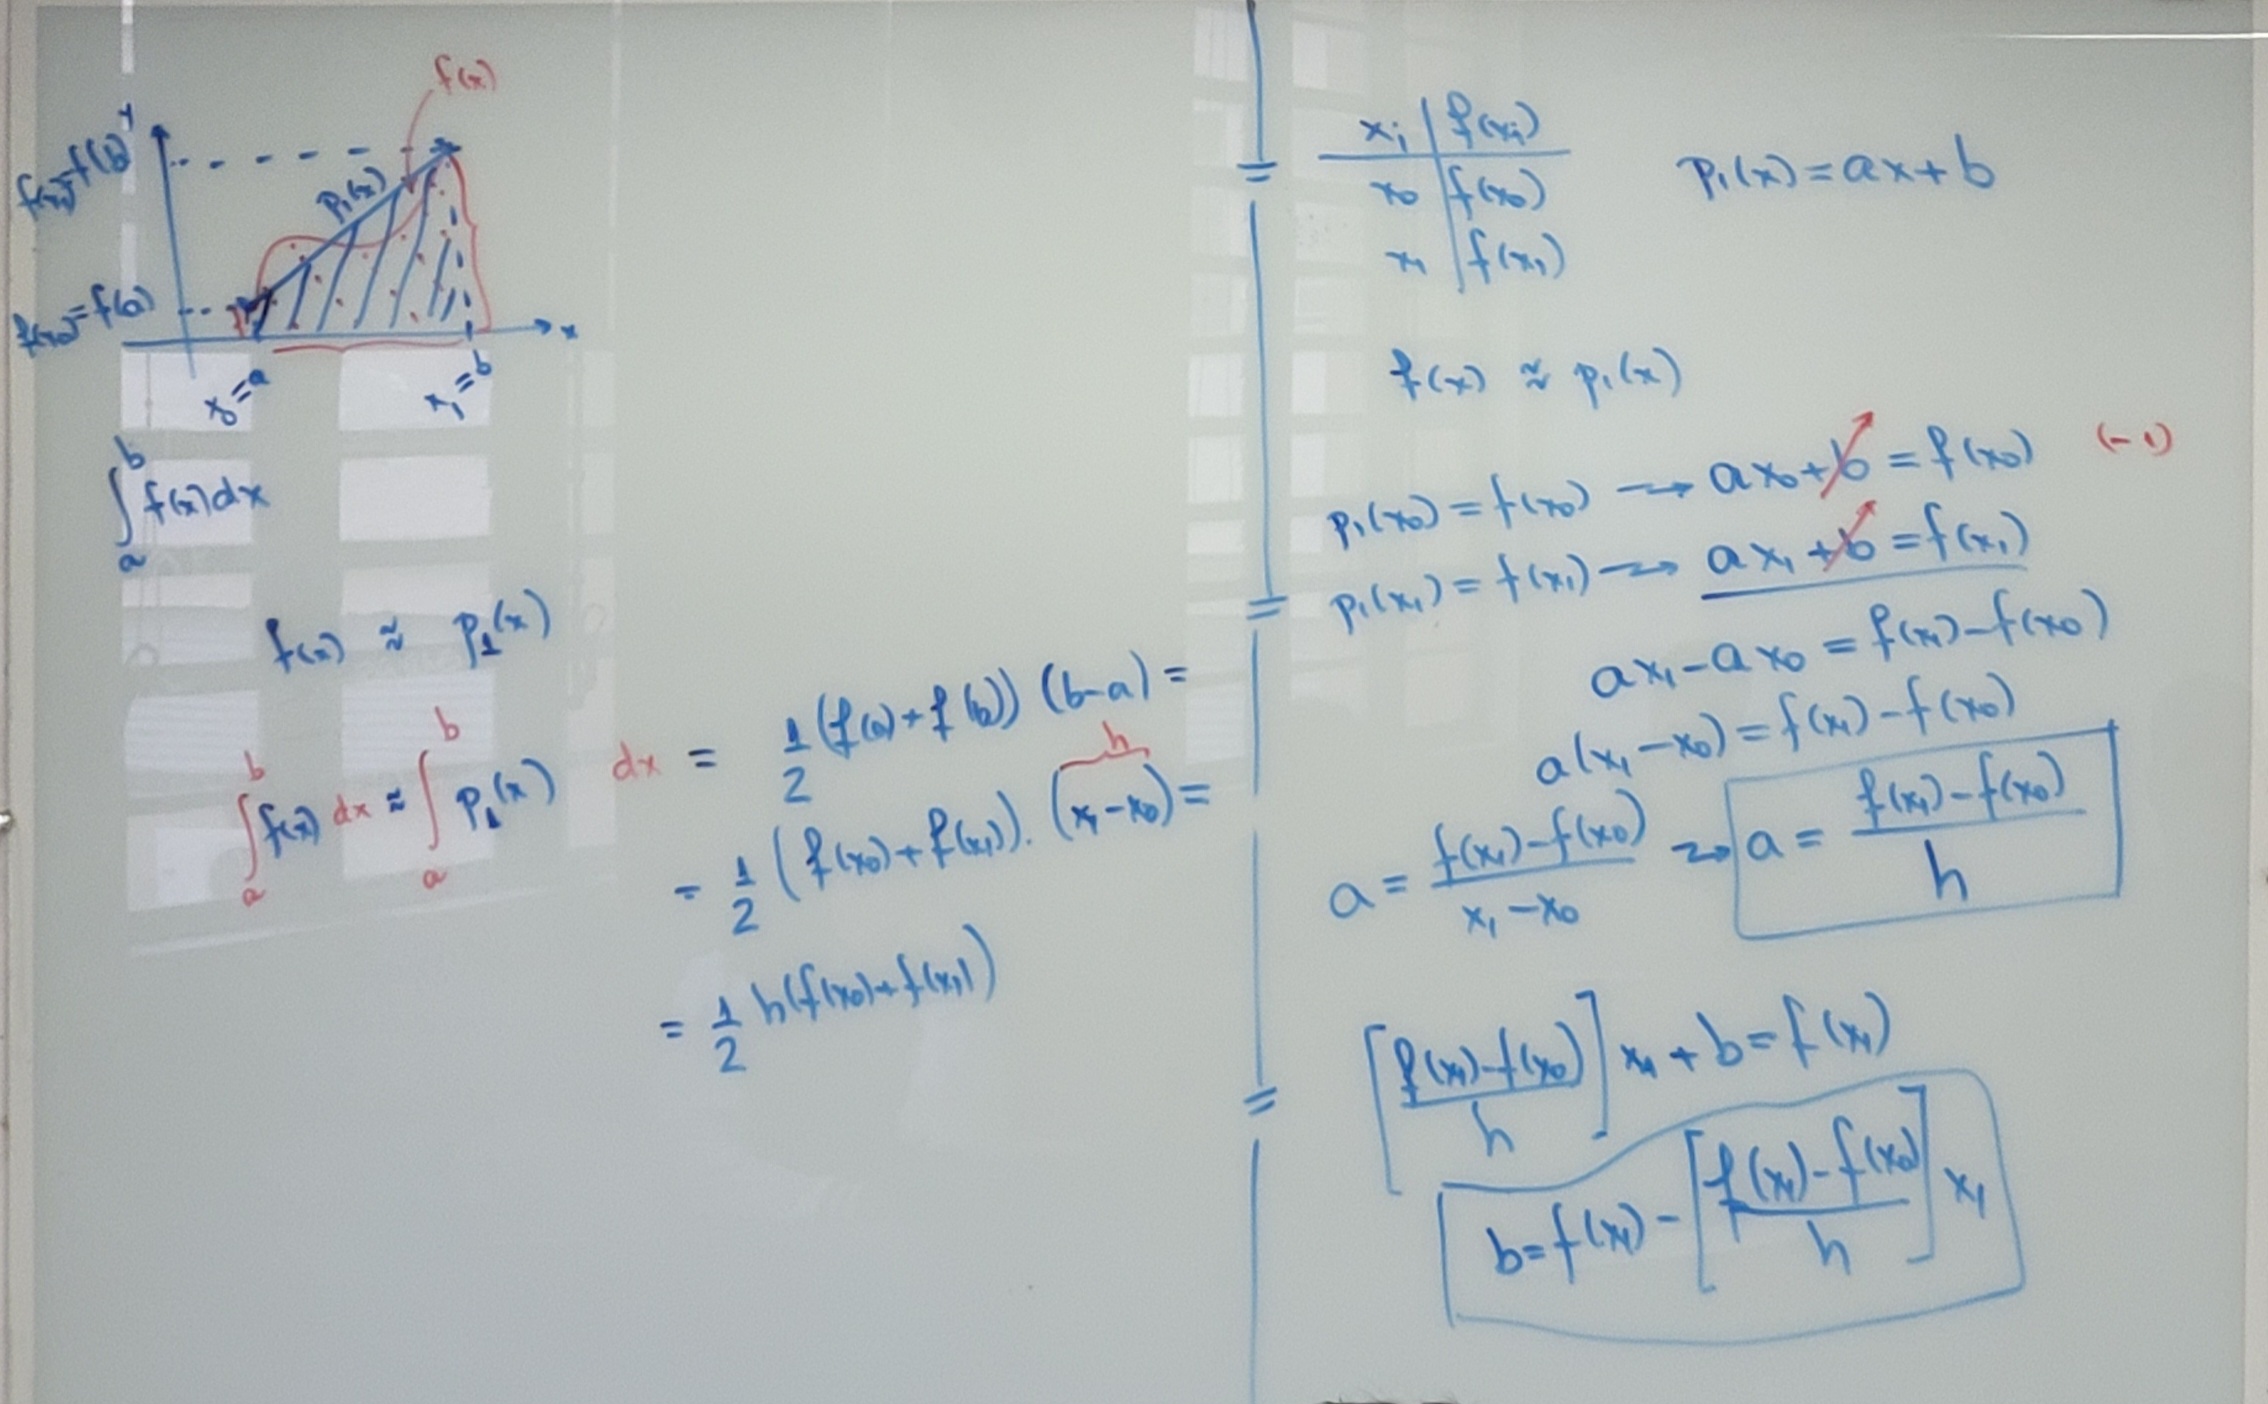 f(x)
y
f(x₁)=f(b)
p₁(x)
f(x₀)=f(a)
x
x₀=a
x₁=b
∫ₐᵇ f(x)dx
f(x) ≈ p₁(x)
∫ₐᵇ f(x) dx ≈ ∫ₐᵇ p₁(x) dx = 1/2 (f(a)+f(b)) (b-a) =
h
= 1/2 (f(x₀)+f(x₁)). (x₁-x₀) =
= 1/2 h(f(x₀)+f(x₁))
xᵢ | f(xᵢ)
x₀ | f(x₀)
x₁ | f(x₁)
p₁(x)=ax+b
f(x) ≈ p₁(x)
p₁(x₀)=f(x₀) → ax₀+b=f(x₀) (-1)
p₁(x₁)=f(x₁) → ax₁+b=f(x₁)
ax₁-ax₀=f(x₁)-f(x₀)
a(x₁-x₀)=f(x₁)-f(x₀)
a = (f(x₁)-f(x₀))/(x₁-x₀) → a = (f(x₁)-f(x₀))/h
[(f(x₁)-f(x₀))/h] x₁+b=f(x₁)
b=f(x₁)-[(f(x₁)-f(x₀))/h] x₁